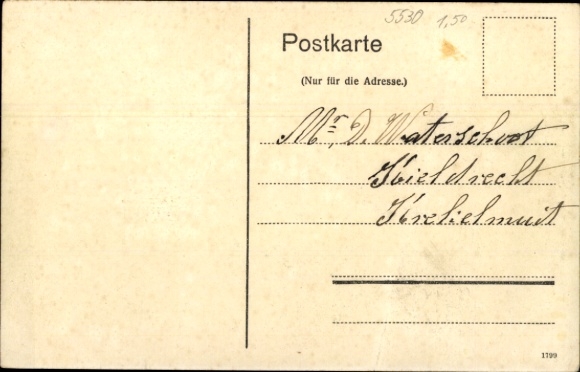 5530 1,50
Postkarte
(Nur für die Adresse.)
Mr. D. Waterschoot
Kieldrecht
1799